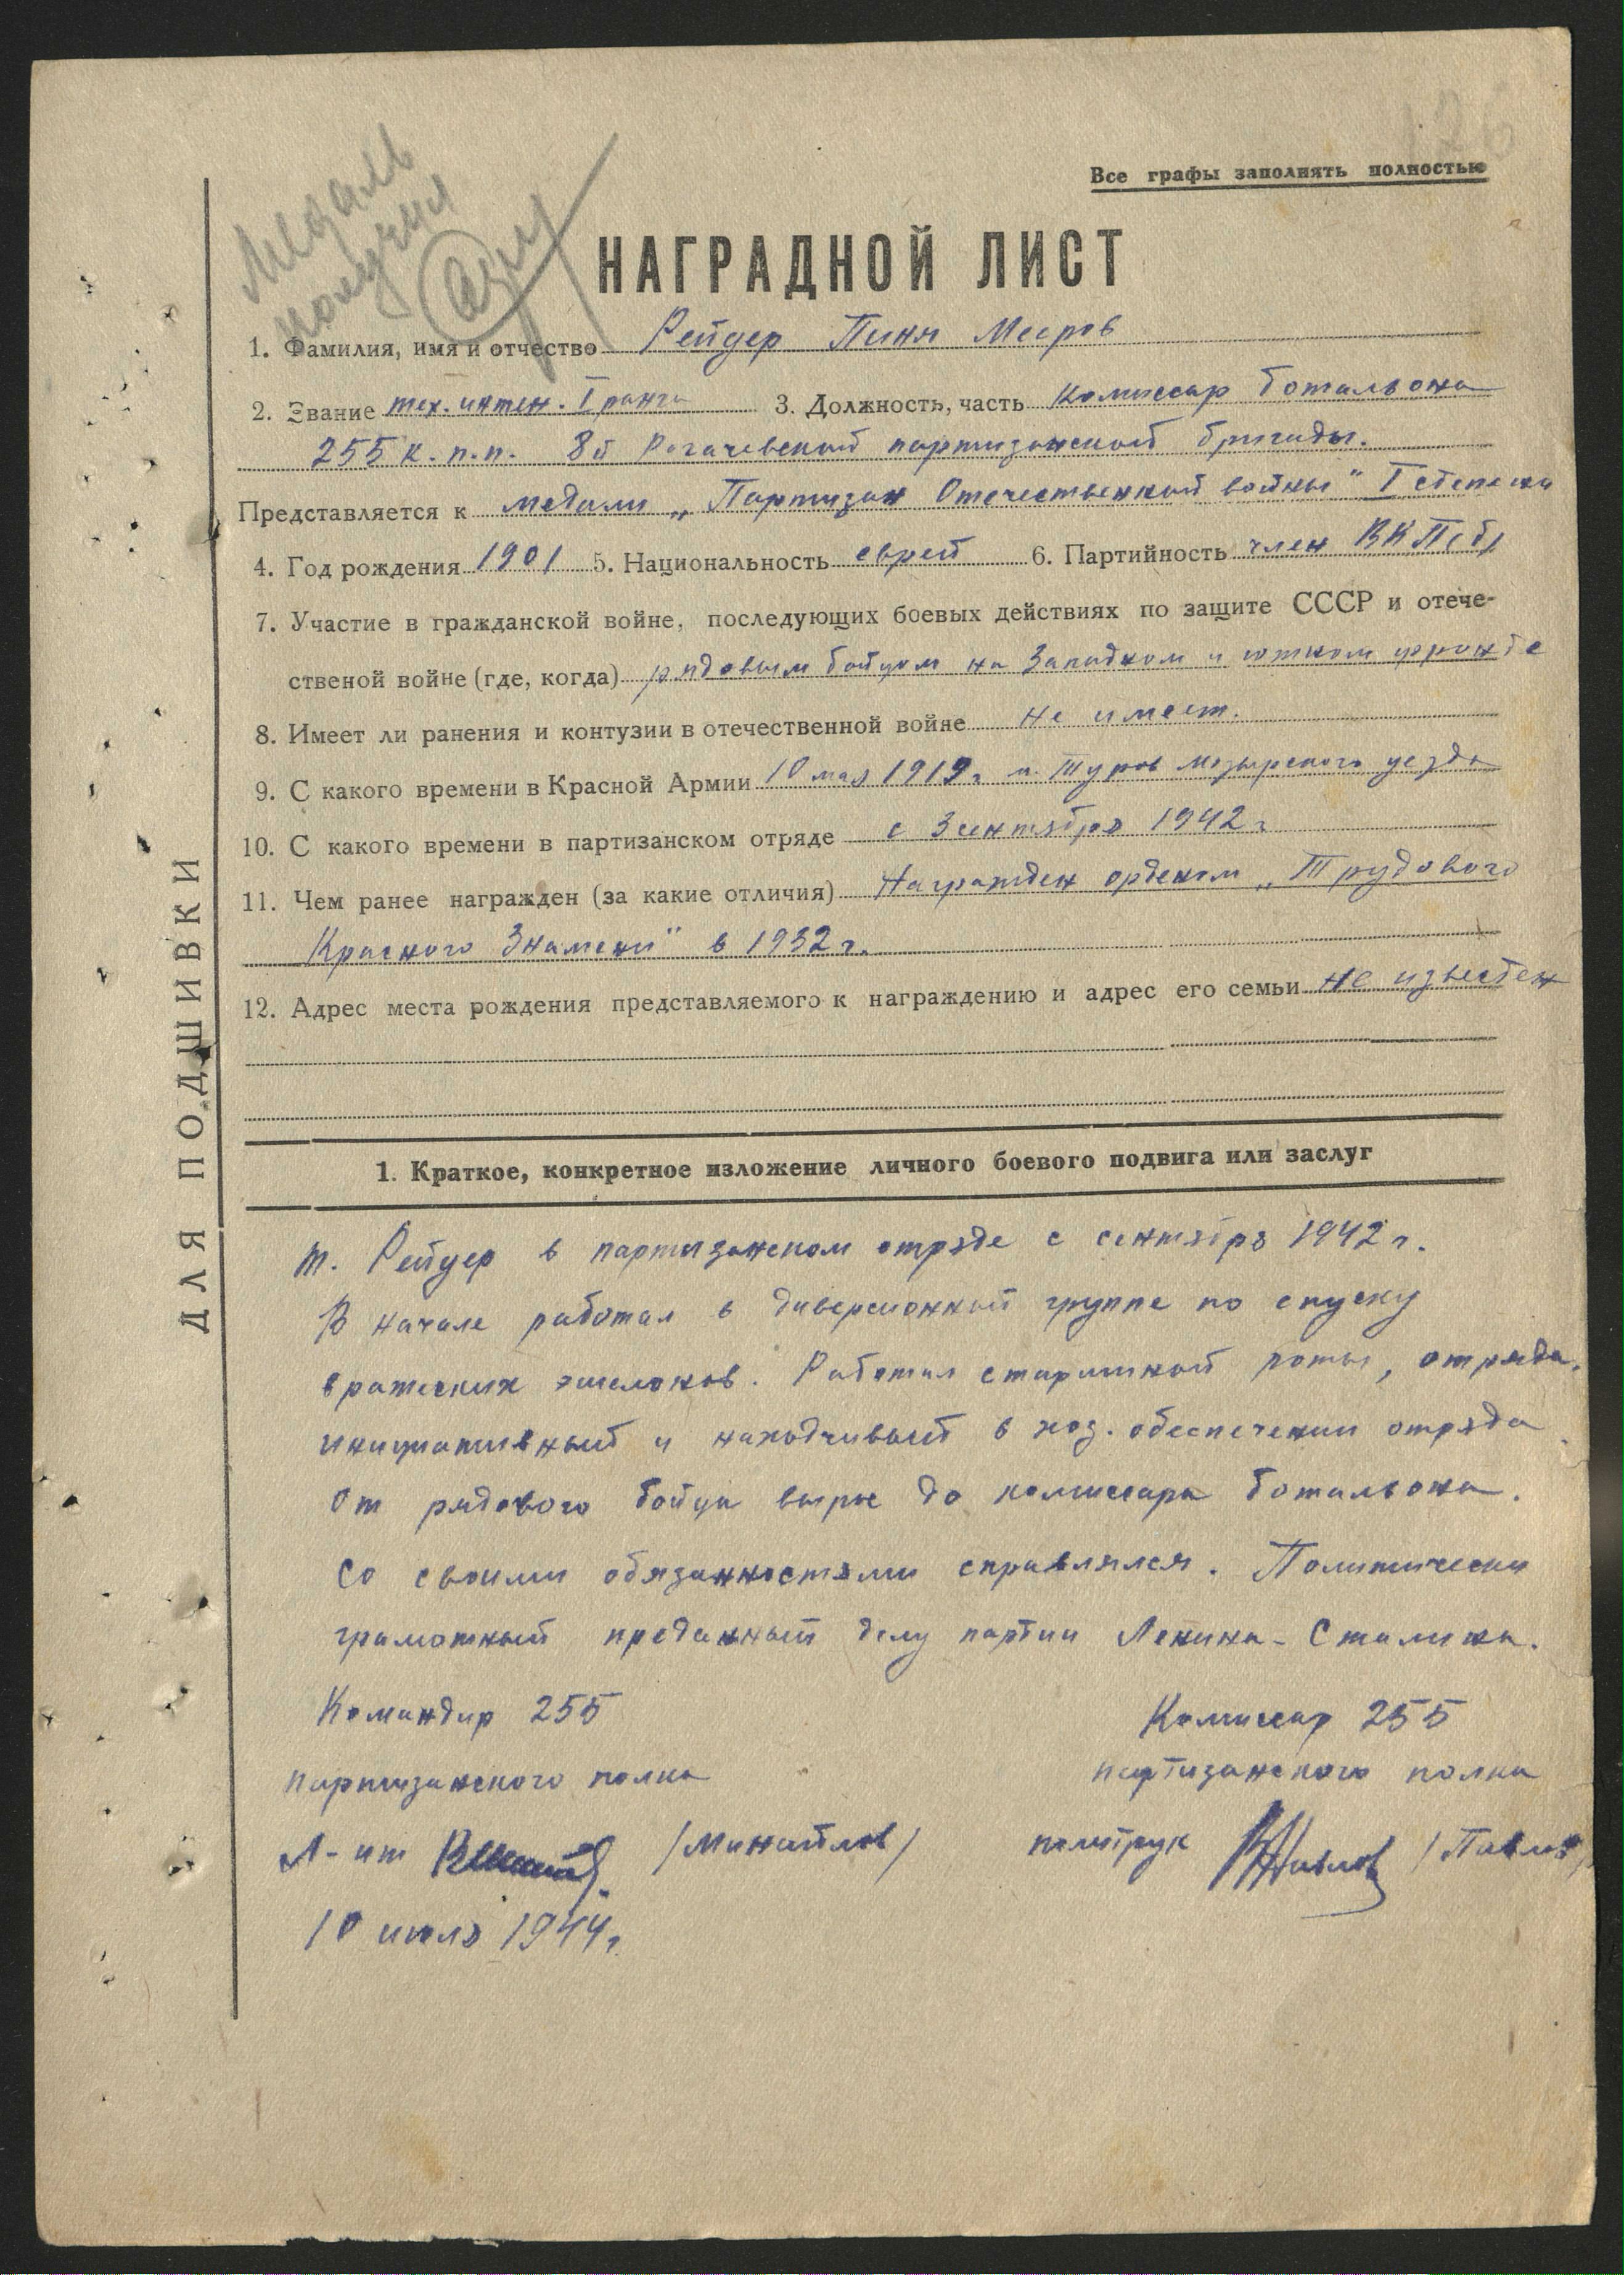 Все графы заполнять полностью
Медаль
получил
НАГРАДНОЙ ЛИСТ
1. Фамилия, имя и отчество Рейдер Пиня Меэров
2. Звание тех. интен. I ранга 3. Должность, часть Комиссар ботальона
255 к.п.п. 8й Рогачевской партизанской бригады.
Представляется к медали „Партизан Отечественной войны" I степени
4. Год рождения 1901 5. Национальность еврей 6. Партийность член ВКП(б)
7. Участие в гражданской войне, последующих боевых действиях по защите СССР и отече-
ственой войне (где, когда) рядовым бойцом на Западном и южном фронте
8. Имеет ли ранения и контузии в отечественной войне не имеет.
9. С какого времени в Красной Армии 10 мая 1919г м. Туров Мозырского уезда
10. С какого времени в партизанском отряде с Зсентября 1942г
11. Чем ранее награжден (за какие отличия) Награжден орденом „Трудового
Красного Знамени" в 1932г.
12. Адрес места рождения представляемого к награждению и адрес его семьи не известен
ДЛЯ ПОДШИВКИ
1. Краткое, конкретное изложение личного боевого подвига или заслуг
т. Рейдер в партизанском отряде с сентября 1942 г.
В начале работал в диверсионной группе по спуску
вражеских эшелонов. Работал старшиной роты, отряда.
инициативный и находчивый в хоз. обеспечении отряда
От рядового бойца вырос до комиссара ботальона.
Со своими обязанностями справлялся. Политически
грамотный преданный делу партии Ленина-Сталина.
Командир 255
партизанского полка
Л-нт /Михайлов/
10 июля 1944г.
Комиссар 255
партизанского полка
политрук Павлов /Павлов/